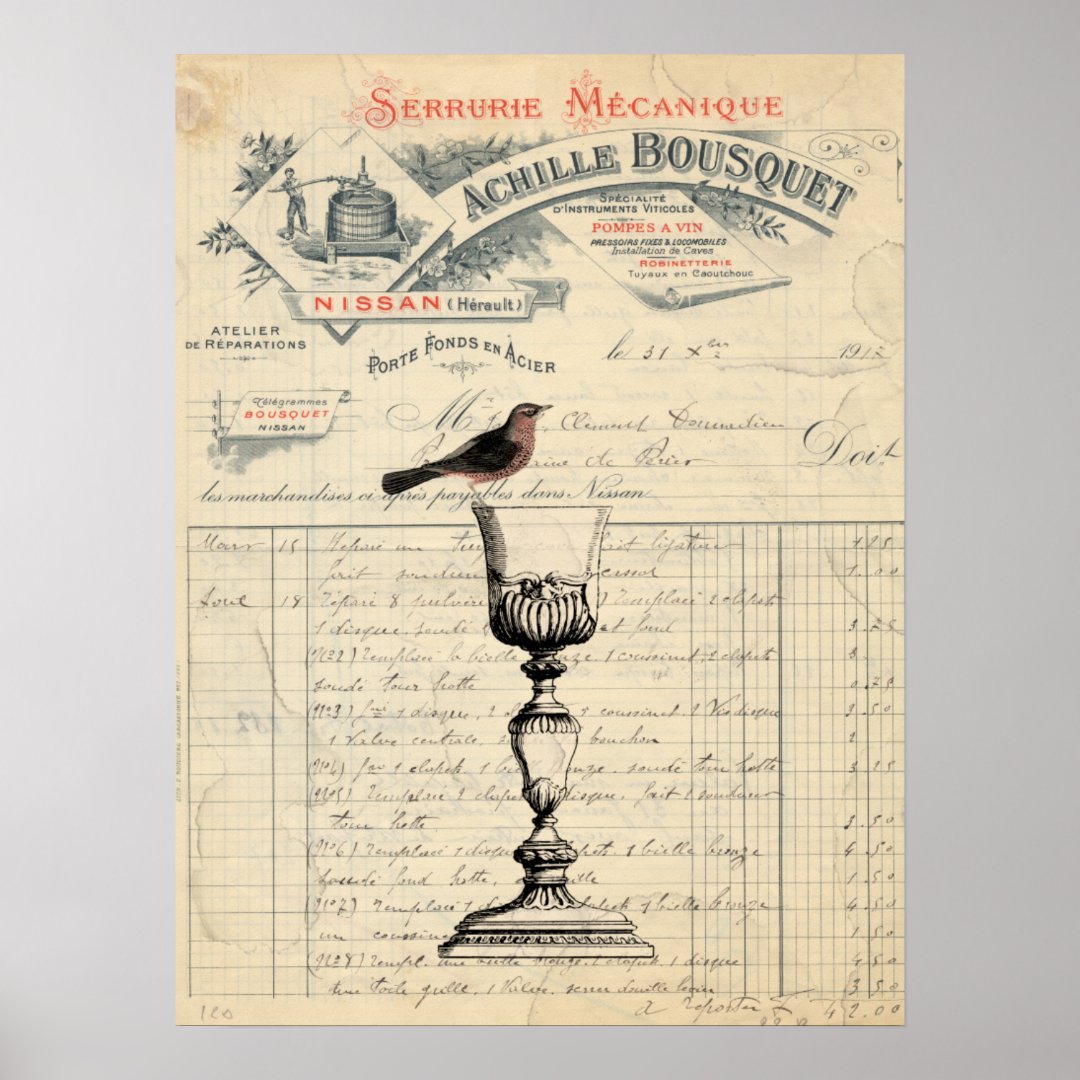 SERRURIE MÉCANIQUE
ACHILLE BOUSQUET
SPÉCIALITÉ
D'INSTRUMENTS VITICOLES
POMPES A VIN
PRESSOIRS FIXES & LOCOMOBILES
Installation de Caves
ROBINETTERIE
Tuyaux en Caoutchouc
NISSAN (Hérault)
ATELIER
DE RÉPARATIONS
PORTE FONDS EN ACIER
le 31 Xbre 1912
Télégrammes
BOUSQUET
NISSAN
Mr Clément Donnadieu
de Périès
Doit
les marchandises ci-après payables dans Nissan
Mars 15 Réparé un fait ligature 1.25
fait soudure 1.00
18 Réparé 8 Remplacé 2 clapets
1 disque, soudé et fond 3.75
(No2) Remplacé la bielle 1 coussinet, 2 clapets 3
soudé tour hotte 0.75
(No3) 1 disque, 2 coussinet, 2 Vis disque 3.50
1 Valve centrale, bouchon 2
(No4) 1 clapets 1 bielle bronze, soudé tour hotte 3 25
(No5) Remplacé 2 clapets disque, fait 1 soudure
tour hotte. 3.50
(No6) Remplacé 1 disque 1 bielle bronze 4.50
soudé fond hotte, 1.50
(No7) Remplacé 1 clapets 1 bielle bronze 4.50
un coussinet 1 50
(No8) Rempl. une 2 clapets, 1 disque 4 50
une toile grille, 1 Valve, 3 50
120
a reporter F 42.00